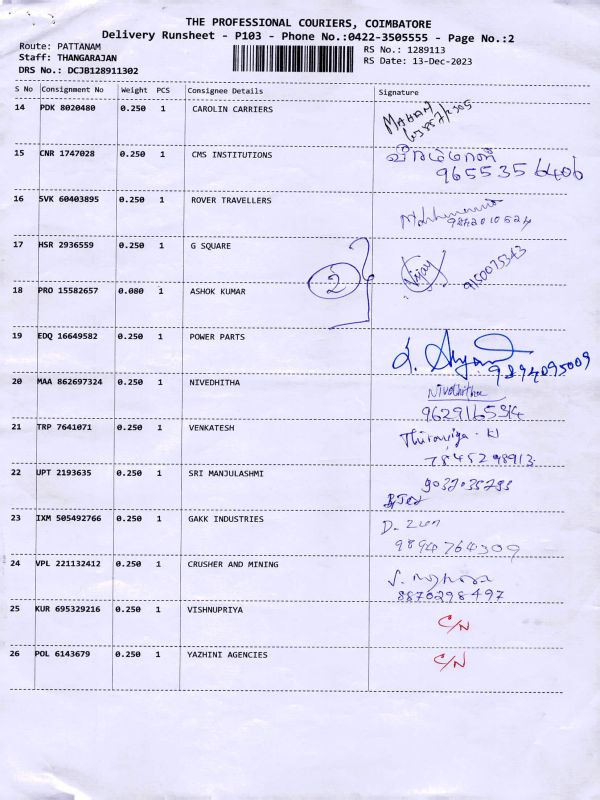 THE PROFESSIONAL COURIERS, COIMBATORE
Delivery Runsheet - P103 - Phone No.:0422-3505555 - Page No.:2
Route: PATTANAM
Staff: THANGARAJAN
DRS No.: DCJB128911302
RS No.: 1289113
RS Date: 13-Dec-2023
S No Consignment No Weight PCS Consignee Details Signature
14 PDK 8020480 0.250 1 CAROLIN CARRIERS
15 CNR 1747028 0.250 1 CMS INSTITUTIONS
9655356406
16 SVK 60403895 0.250 1 ROVER TRAVELLERS
9842010524
17 HSR 2936559 0.250 1 G SQUARE Vijay 9150075343
2
18 PRO 15582657 0.080 1 ASHOK KUMAR
19 EDQ 16649582 0.250 1 POWER PARTS
9894095009
20 MAA 862697324 0.250 1 NIVEDHITHA Nivedhitha
21 TRP 7641071 0.250 1 VENKATESH
7845298913
22 UPT 2193635 0.250 1 SRI MANJULASHMI
23 IXM 505492766 0.250 1 GAKK INDUSTRIES
9894764309
24 VPL 221132412 0.250 1 CRUSHER AND MINING
8870298497
25 KUR 695329216 0.250 1 VISHNUPRIYA C/N
26 POL 6143679 0.250 1 YAZHINI AGENCIES C/N